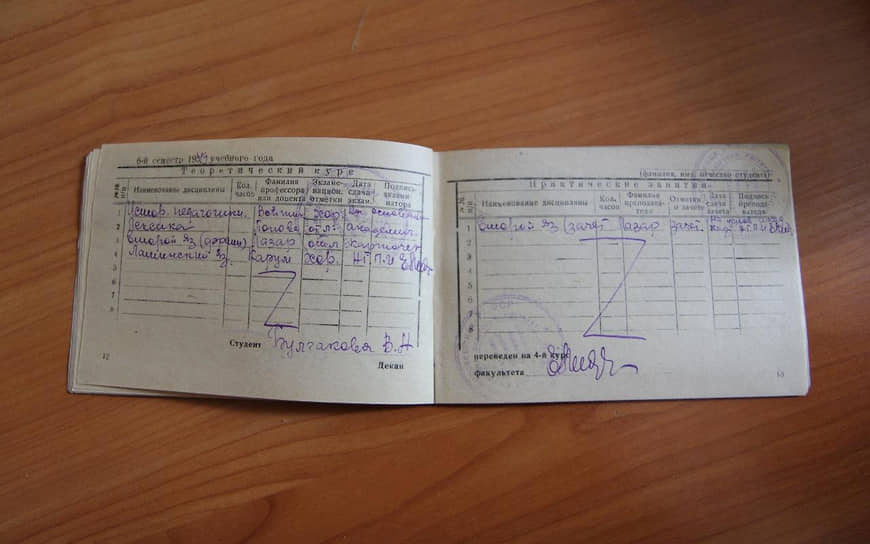 6-й семестр 19 учебного года
Теоретический курс
№№ п/п Наименование дисциплины Кол. часов Фамилия профессора или доцента Экзаменацион. отметки Дата сдачи экзам. Подпись экзаменатора
1 Истор. педагогики. хор. На основании
2 Лексика Попова отл. академич.
3 Второй яз (франц) Лазар отл карточек
4 Латинский яз. Карум хор. НГПИ
5
6
7
8
Студент Булгакова В. Н
12
Декан
(фамилия, имя, отчество студента)
Практические занятия
№№ п/п Наименование дисциплины Кол. часов Фамилия преподавателя Отметка о зачете Дата сдачи зачета Подпись преподавателя
1 Второй яз (зачет Лазар Зачт. На основ. акад.
2 кар НГПИ
3
4
5
6
7
8
переведен на 4-й курс
факультета
13